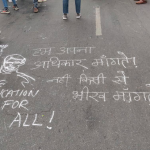 हम अपना
अधिकार माँगते
नहीं किसी से
भीख माँगते
FOR
ALL!